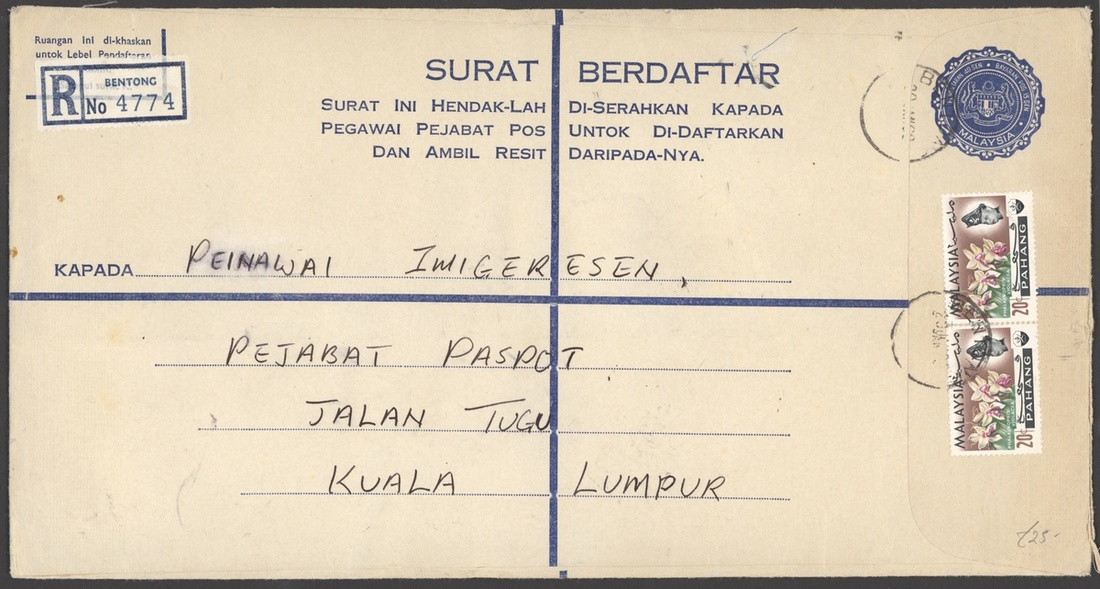 Ruangan Ini di-khaskan
untok Lebel Pendaftaran
R BENTONG
No 4774
SURAT BERDAFTAR
SURAT INI HENDAK-LAH DI-SERAHKAN KAPADA
PEGAWAI PEJABAT POS UNTOK DI-DAFTARKAN
DAN AMBIL RESIT DARIPADA-NYA.
MALAYSIA
KAPADA PEINAWAI IMIGERESEN,
PEJABAT PASPOT
JALAN TUGU
KUALA LUMPUR
MALAYSIA
PAHANG
20c
MALAYSIA
PAHANG
20c
£25-